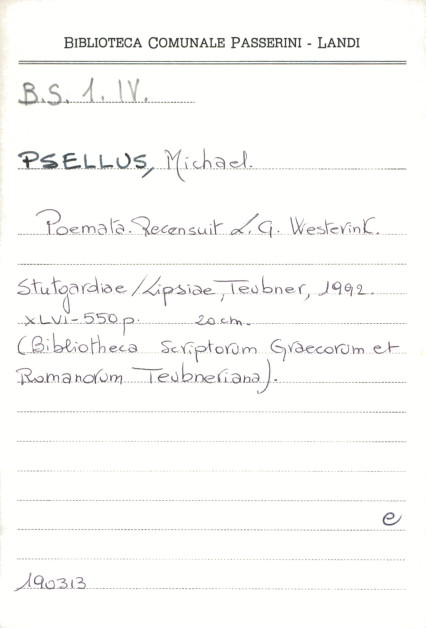 BIBLIOTECA COMUNALE PASSERINI - LANDI
B.S. 1. IV.
PSELLUS, Michael.
Poemata. Recensuit L. G. Westerink.
Stutgardiae/Lipsiae, Teubner, 1992.
XLVI-550 p. 20 cm.
(Bibliotheca Scriptorum Graecorum et
Romanorum Teubneriana).
e
190313